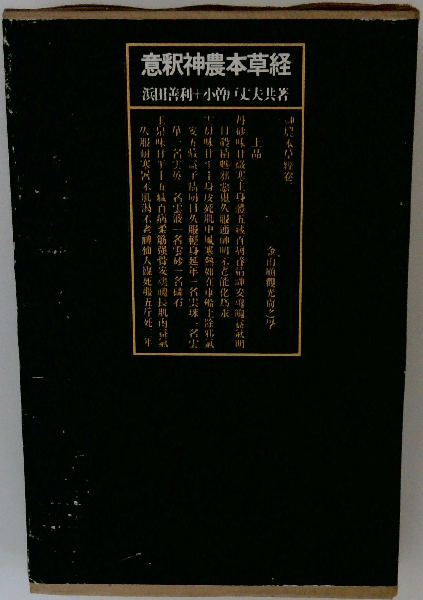 意釈神農本草経
浜田善利+小曽戸丈夫共著
神農本草経卷
上品
丹砂味甘微寒主身體五藏百病養精神安魂魄益氣明
目殺精魅邪惡鬼久服通神明不老能化為汞
雲母味甘平主身皮死肌中風寒熱如在車船上除邪氣
安五藏益子精明目久服輕身延年一名雲珠一名雲
華一名雲英一名雲液一名雲砂一名磷石
玉泉味甘平主五藏百病柔筋強骨安魂魄長肌肉益氣
久服耐寒暑不飢渴不老神仙人臨死服五斤死三年